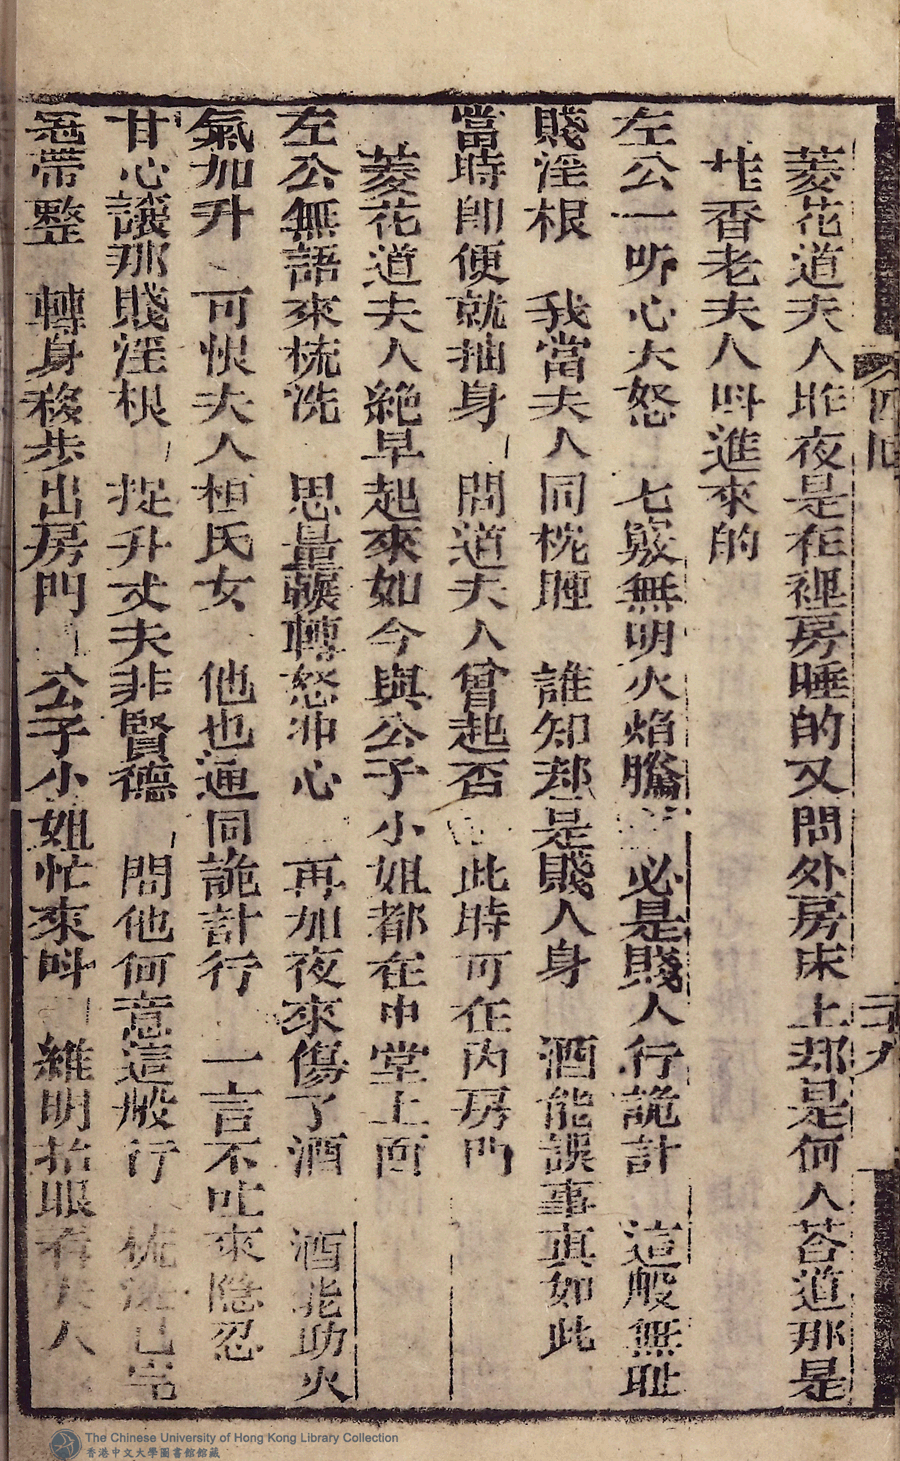 四回
二十九
菱花道夫人昨夜是在裡房睡的又問外房床上却是何人荅道那是
廿香老夫人呌進來的
左公一听心大怒 七竅無明火焰騰 必是賤人行詭計 這般無耻
賤淫根 我當夫人同枕睡 誰知却是賤人身 酒能誤事真如此
當時卽便就抽身 問道夫人曾起否 此時可在内房門
菱花道夫人絶早起來如今與公子小姐都在中堂上面
左公無語來梳洗 思量輾轉怒冲心 再加夜來傷了酒 酒能助火
氣加升 可恨夫人桓氏女 他也通同詭計行 一言不吐來隐忍
甘心讓那賤淫根 捉弄丈夫非賢德 問他何意這般行 梳洗已完
冠帶整 轉身移步出房門 公子小姐忙來呌 維明抬眼看夫人
The Chinese University of Hong Kong Library Collection
香港中文大學圖書館館藏